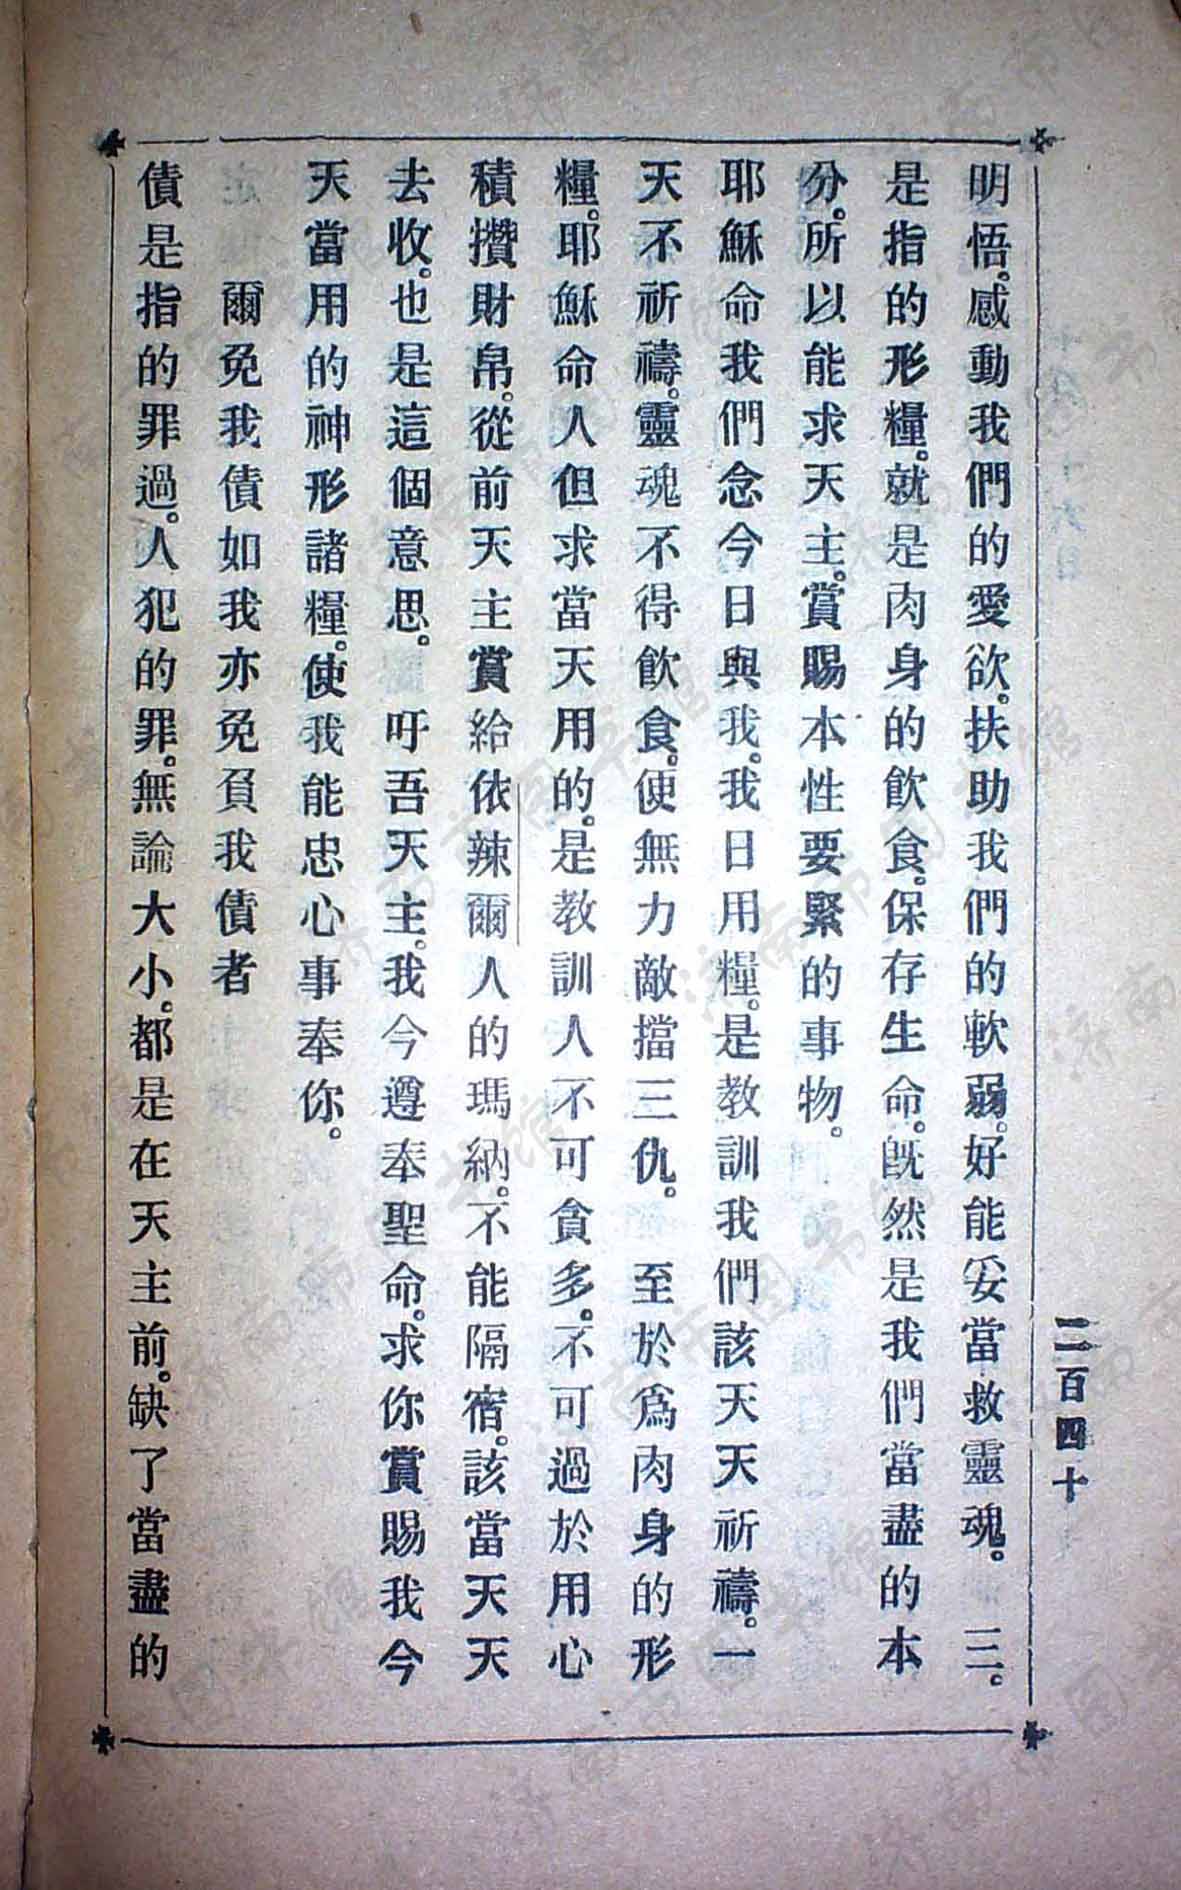 明悟。感動我們的愛欲。扶助我們的軟弱。好能妥當救靈魂。　三。
是指的形糧。就是肉身的飲食。保存生命。旣然是我們當盡的本
分。所以能求天主。賞賜本性要緊的事物。
耶穌命我們念今日與我。我日用糧。是教訓我們該天天祈禱。一
天不祈禱。靈魂不得飲食。便無力敵擋三仇。　至於爲肉身的形
糧。耶穌命人但求當天用的。是教訓人不可貪多。不可過於用心
積攢財帛。從前天主賞給依辣爾人的瑪納。不能隔宿。該當天天
去收。也是這個意思。　吁吾天主。我今遵奉聖命。求你賞賜我今
天當用的神形諸糧。使我能忠心事奉你。
爾免我債如我亦免負我債者
債是指的罪過。人犯的罪。無論大小。都是在天主前。缺了當盡的
二百四十